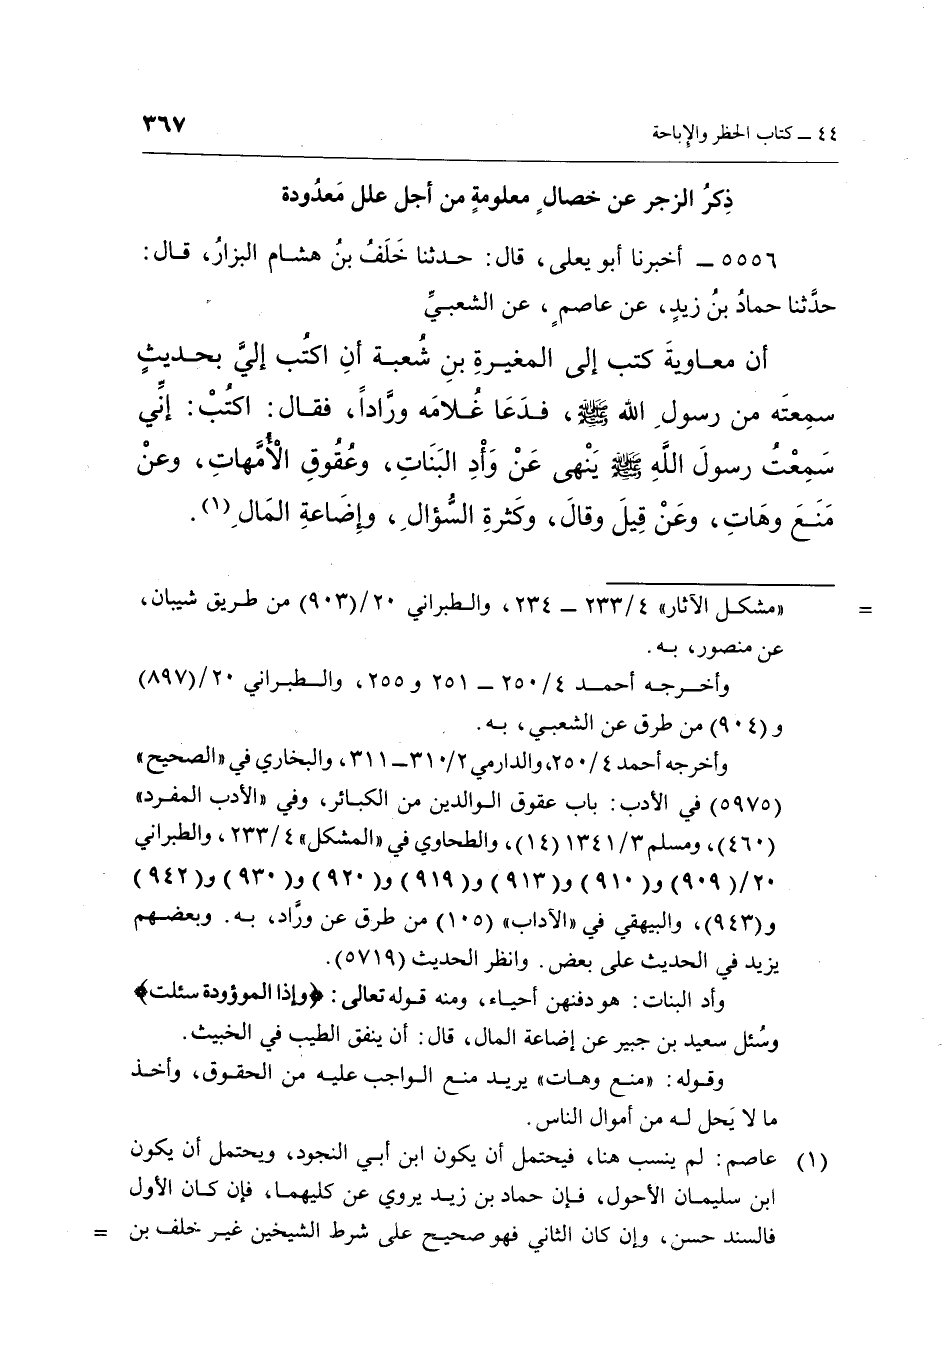 ٤٤ ـ كتاب الحظر والإباحة ٣٦٧
ذِكرُ الزجر عن خصالٍ معلومةٍ من أجل علل مَعدُودة
٥٥٥٦ ـ أخبرنا أبو يعلى، قال: حدثنا خَلَفُ بنُ هشام البزارُ، قال:
حدَّثنا حمادُ بنُ زيدٍ، عن عاصمٍ، عن الشعبيِّ
أن معاويةَ كتب إلى المغيرةِ بنِ شُعبة أنِ اكتُب إليَّ بحديثٍ
سمِعتَه من رسولِ الله ﷺ، فدَعَا غُلامَه ورَّاداً، فقال: اكتُبْ: إنِّي
سَمِعْتُ رسولَ اللَّهِ ﷺ يَنْهى عَنْ وَأْدِ البَنَاتِ، وعُقُوقِ الْأُمَّهاتِ، وعنْ
مَنَعَ وهَاتِ، وعَنْ قِيلَ وقالَ، وكَثرةِ السُّؤالِ، وإضَاعةِ المَالِ(١).
= «مشكل الآثار» ٢٣٣/٤ ـ ٢٣٤، والطبراني ٢٠/(٩٠٣) من طريق شيبان،
عن منصور، به.
وأخرجه أحمد ٢٥٠/٤ ـ ٢٥١ و ٢٥٥، والطبراني ٢٠/(٨٩٧)
و (٩٠٤) من طرق عن الشعبي، به.
وأخرجه أحمد ٢٥٠/٤، والدارمي ٣١٠/٢ـ٣١١، والبخاري في «الصحيح»
(٥٩٧٥) في الأدب: باب عقوق الوالدين من الكبائر، وفي «الأدب المفرد»
(٤٦٠)، ومسلم ١٣٤١/٣ (١٤)، والطحاوي في «المشكل» ٢٣٣/٤، والطبراني
٢٠/(٩٠٩) و(٩١٠) و(٩١٣) و(٩١٩) و(٩٢٠) و(٩٣٠) و(٩٤٢)
و(٩٤٣)، والبيهقي في «الآداب» (١٠٥) من طرق عن ورَّاد، به. وبعضهم
يزيد في الحديث على بعض. وانظر الحديث (٥٧١٩).
وأد البنات: هو دفنهن أحياء، ومنه قوله تعالى: ﴿وإذا الموؤودة سئلت﴾
وسُئل سعيد بن جبير عن إضاعة المال، قال: أن ينفق الطيب في الخبيث.
وقوله: «منع وهات» يريد منع الواجب عليه من الحقوق، وأخذ
ما لا يَحل له من أموال الناس.
(١) عاصم: لم ينسب هنا، فيحتمل أن يكون ابن أبي النجود، ويحتمل أن يكون
ابن سليمان الأحول، فإن حماد بن زيد يروي عن كليهما، فإن كان الأول
فالسند حسن، وإن كان الثاني فهو صحيح على شرط الشيخين غير خلف بن =